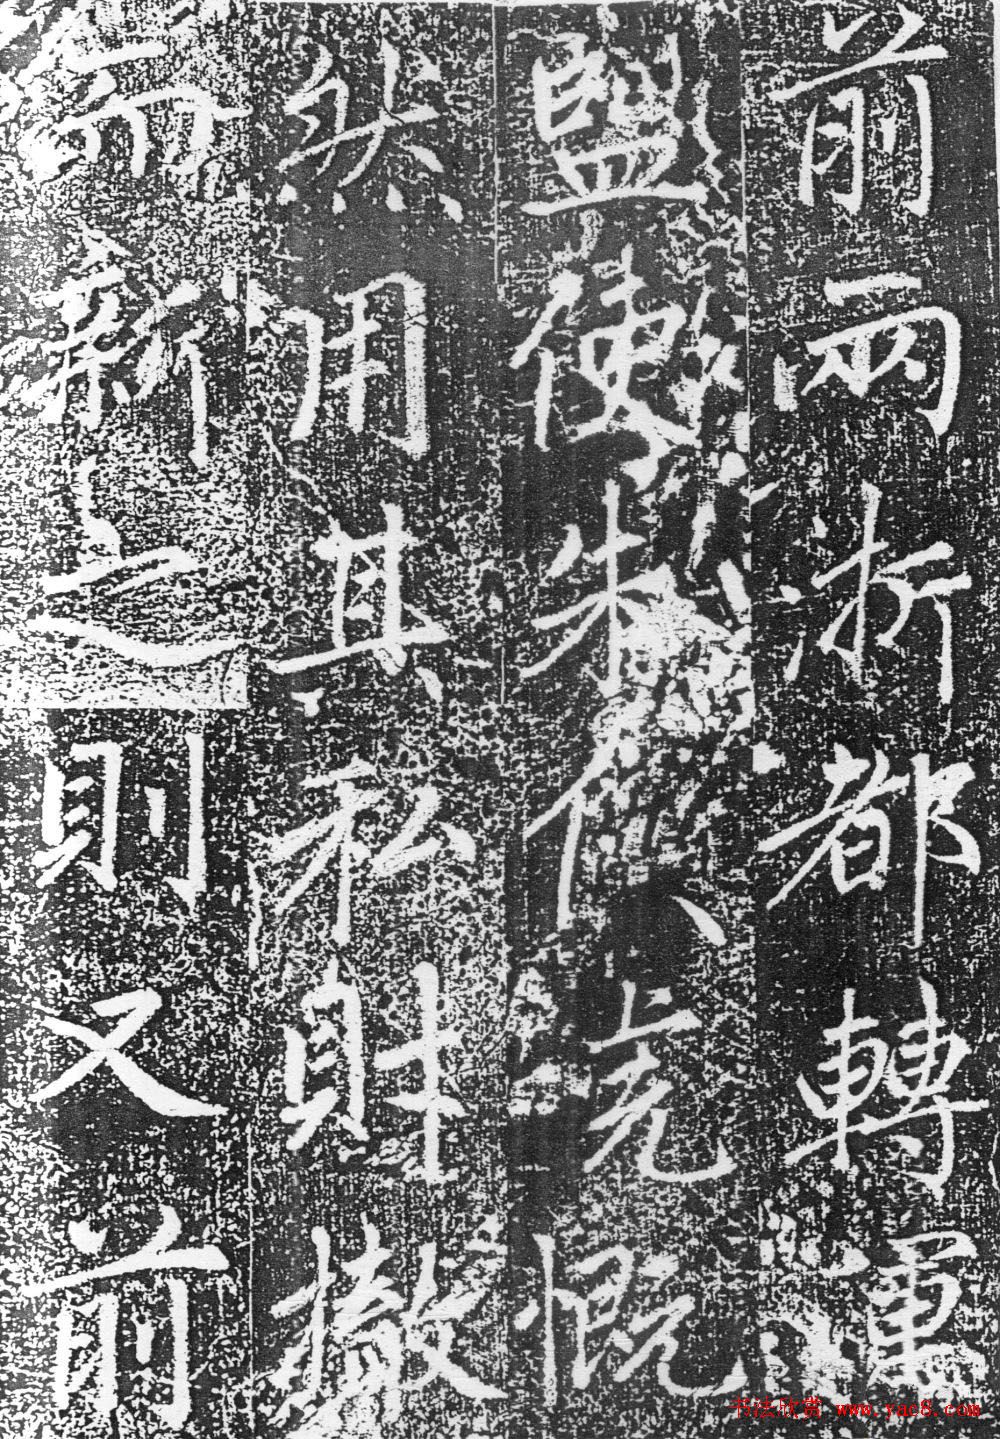 前兩浙都轉運
鹽使朱公虎慨
然用其私財撤
而新之則又前
书法欣赏 www.yac8.com